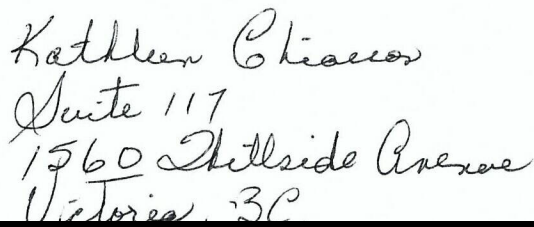 Kathleen
Suite 117
1560 Hillside Avenue
Victoria, BC